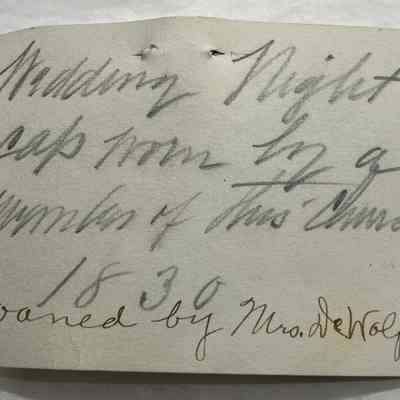 Wedding Night
cap worn by a
Member of this Churc
1830
oaned by Mrs. DeWolf